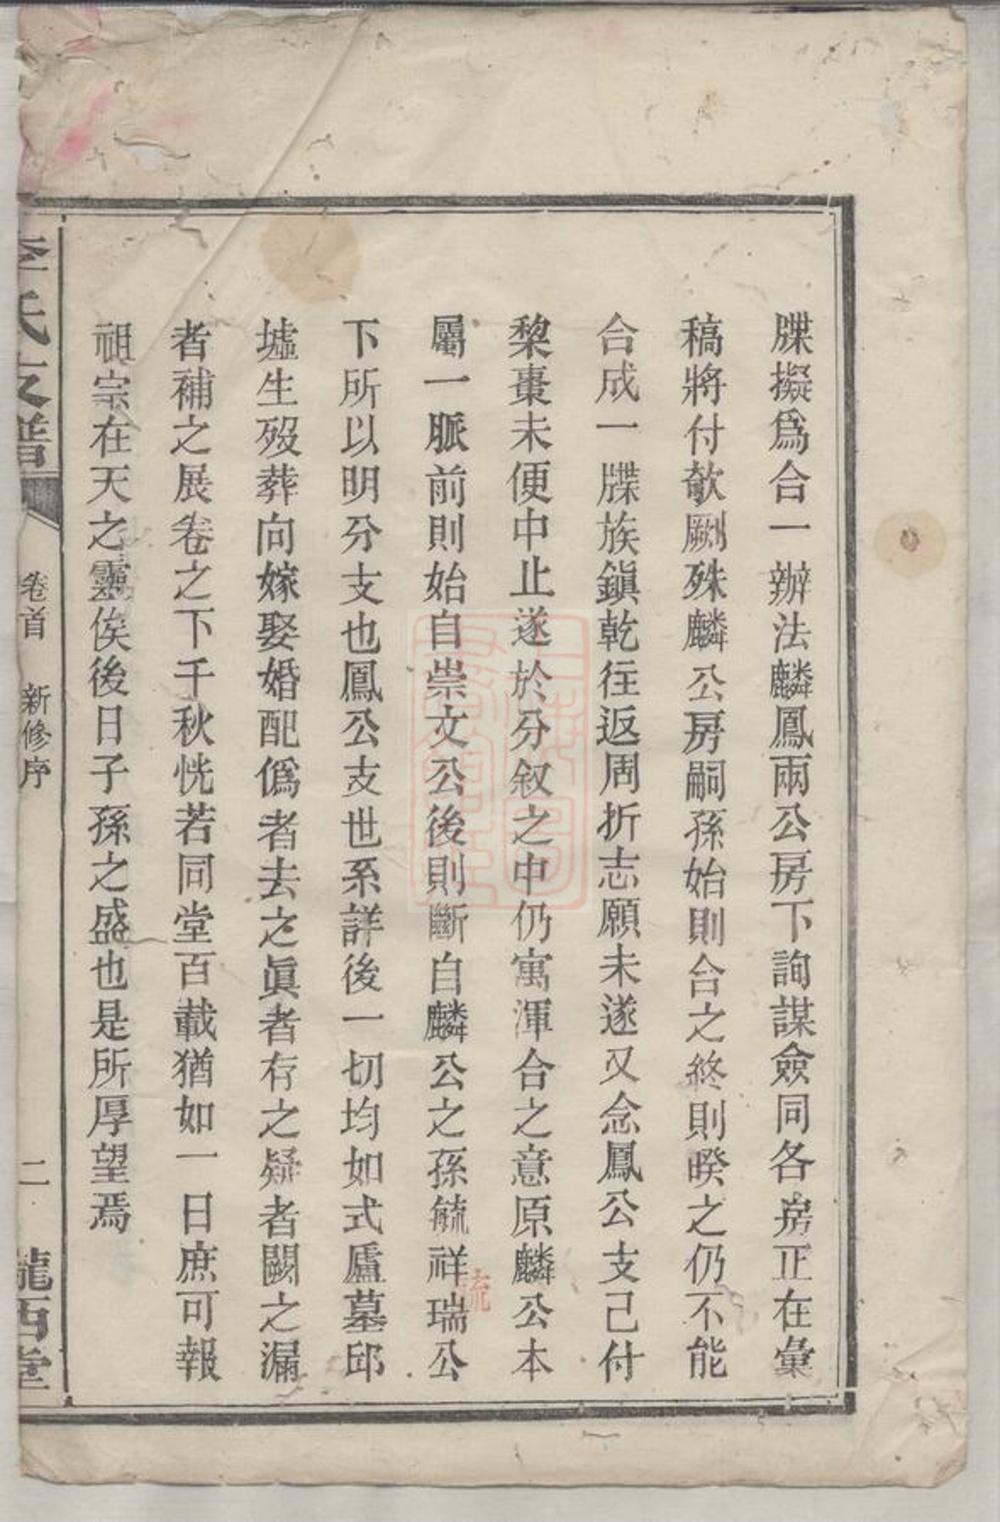 牒擬爲合一辦法麟鳳兩公房下詢謀僉同各房正在彙
稿將付欹劂殊麟公房嗣孫始則合之終則暌之仍不能
合成一牒族鎭乾往返周折志願未遂又念鳳公支已付
棃棗未便中止遂於分叙之中仍寓渾合之意原麟公本
屬一脈前則始自崇文公後則斷自麟公之孫毓祥瑞公
下所以明分支也鳳公支世系詳後一切均如式廬墓邱
墟生歿葬向嫁娶婚配僞者去之眞者存之疑者闕之漏
者補之展卷之下千秋恍若同堂百載猶如一日庶可報
祖宗在天之靈俟後日子孫之盛也是所厚望焉
李氏支譜
卷首 新修序
二
隴西堂
流